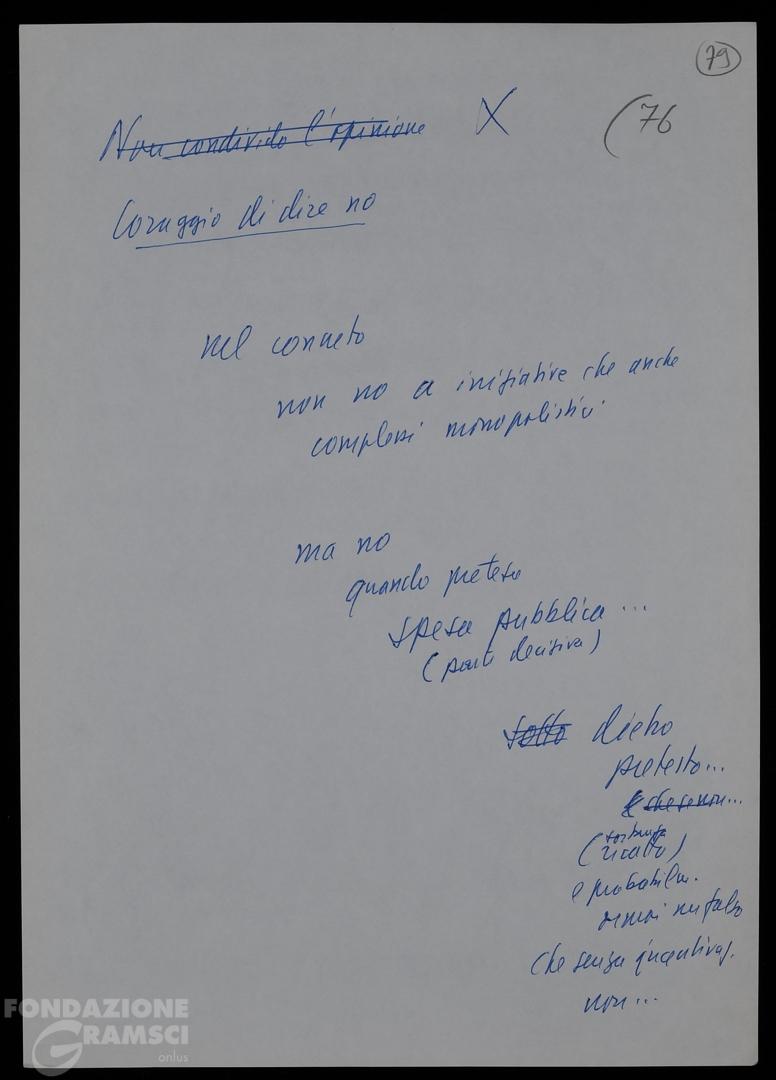 79
Non condivido l'opinione X (76
Coraggio di dire no
nel concreto
non no a iniziative che anche
complessi monopolistici
ma no
quando pretesa
spesa pubblica...
(parte decisiva)
sotto dietro
pretesto...
che se non...
(ricatto)
e probabilm.
ormai
che senza incentivaz.
non...
FONDAZIONE
GRAMSCI
onlus